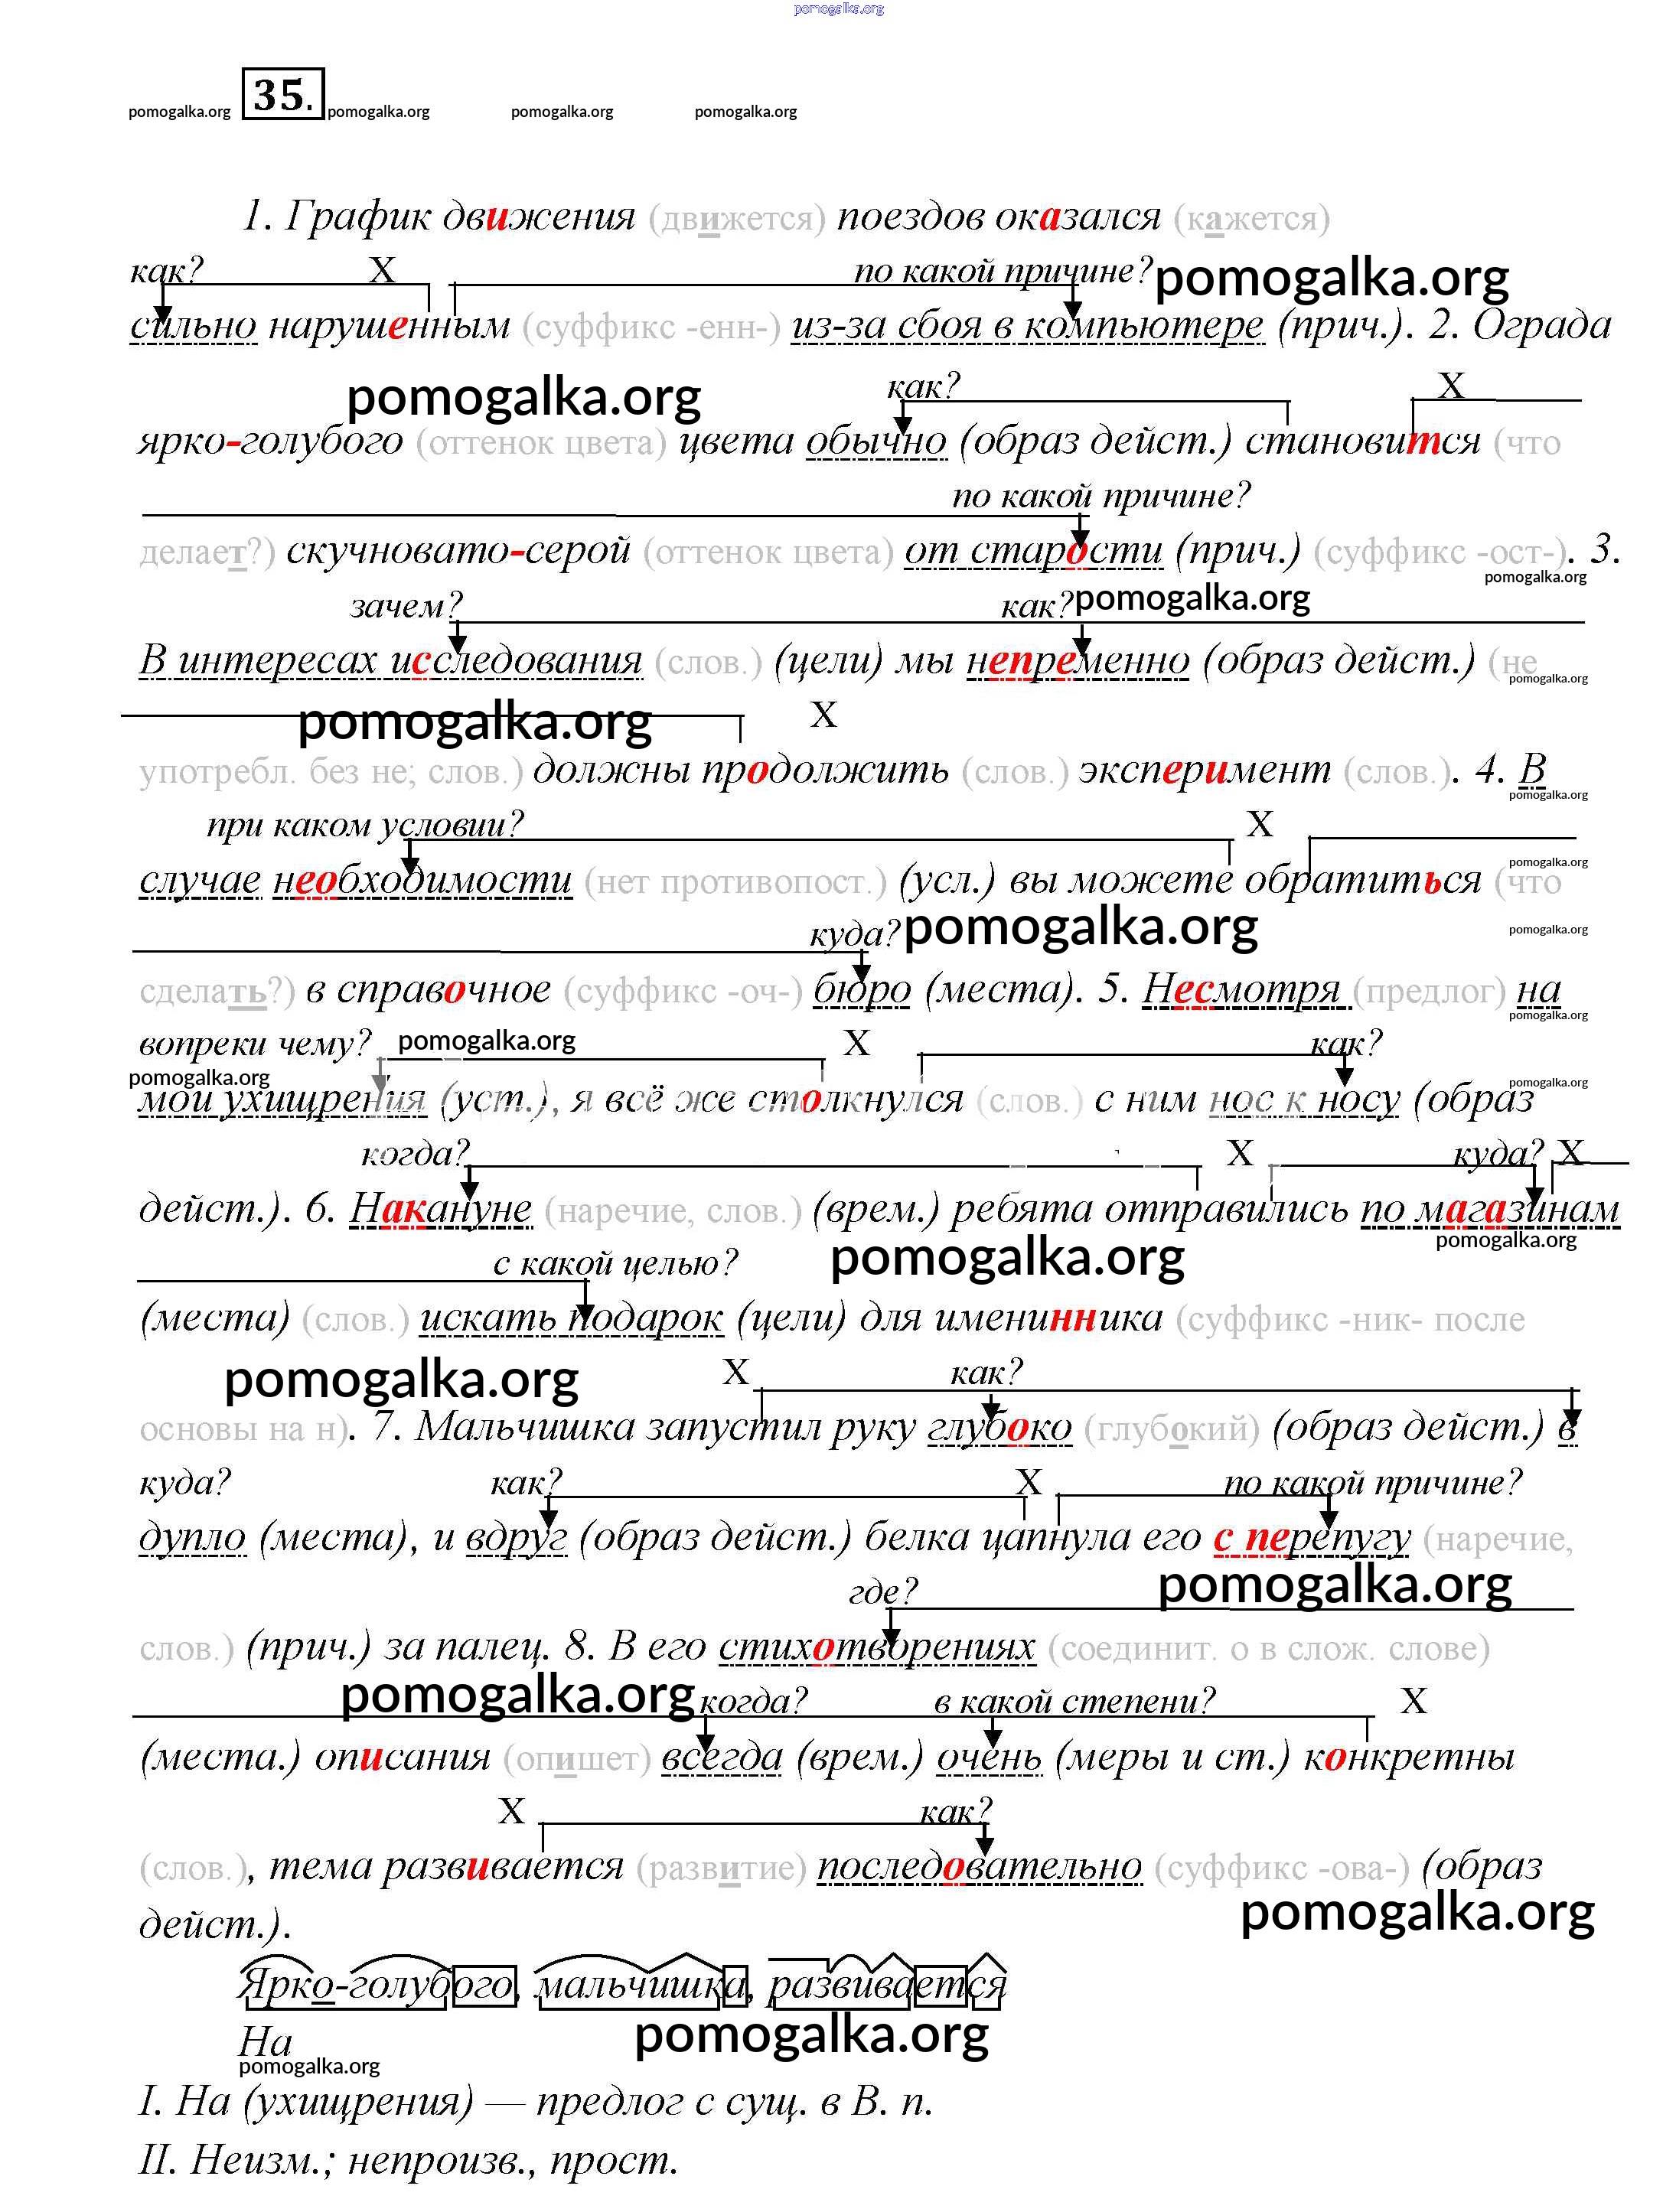 pomogalka.org
35.
pomogalka.org pomogalka.org pomogalka.org pomogalka.org
1. График движения (движется) поездов оказался (кажется)
как? X по какой причине? pomogalka.org
сильно нарушенным (суффикс -енн-) из-за сбоя в компьютере (прич.). 2. Ограда
pomogalka.org как? X
ярко-голубого (оттенок цвета) цвета обычно (образ дейст.) становится (что
по какой причине?
делает?) скучновато-серой (оттенок цвета) от старости (прич.) (суффикс -ост-). 3.
pomogalka.org
зачем? как? pomogalka.org
В интересах исследования (слов.) (цели) мы непременно (образ дейст.) (не
pomogalka.org
pomogalka.org X
употребл. без не; слов.) должны продолжить (слов.) эксперимент (слов.). 4. В
pomogalka.org
при каком условии? X
pomogalka.org
случае необходимости (нет противопост.) (усл.) вы можете обратиться (что
куда? pomogalka.org pomogalka.org
сделать?) в справочное (суффикс -оч-) бюро (места). 5. Несмотря (предлог) на
pomogalka.org
вопреки чему? pomogalka.org X как?
pomogalka.org pomogalka.org
мои ухищрения (уст.), я всё же столкнулся (слов.) с ним нос к носу (образ
когда? X куда? X
дейст.). 6. Накануне (наречие, слов.) (врем.) ребята отправились по магазинам
с какой целью? pomogalka.org pomogalka.org
(места) (слов.) искать подарок (цели) для именинника (суффикс -ник- после
pomogalka.org X как?
основы на н). 7. Мальчишка запустил руку глубоко (глубокий) (образ дейст.) в
куда? как? X по какой причине?
дупло (места), и вдруг (образ дейст.) белка цапнула его с перепугу (наречие,
где? pomogalka.org
слов.) (прич.) за палец. 8. В его стихотворениях (соединит. о в слож. слове)
pomogalka.org когда? в какой степени? X
(места.) описания (опишет) всегда (врем.) очень (меры и ст.) конкретны
X как?
(слов.), тема развивается (развитие) последовательно (суффикс -ова-) (образ
pomogalka.org
дейст.).
Ярко-голубого, мальчишка, развивается
На pomogalka.org
pomogalka.org
I. На (ухищрения) — предлог с сущ. в В. п.
II. Неизм.; непроизв., прост.